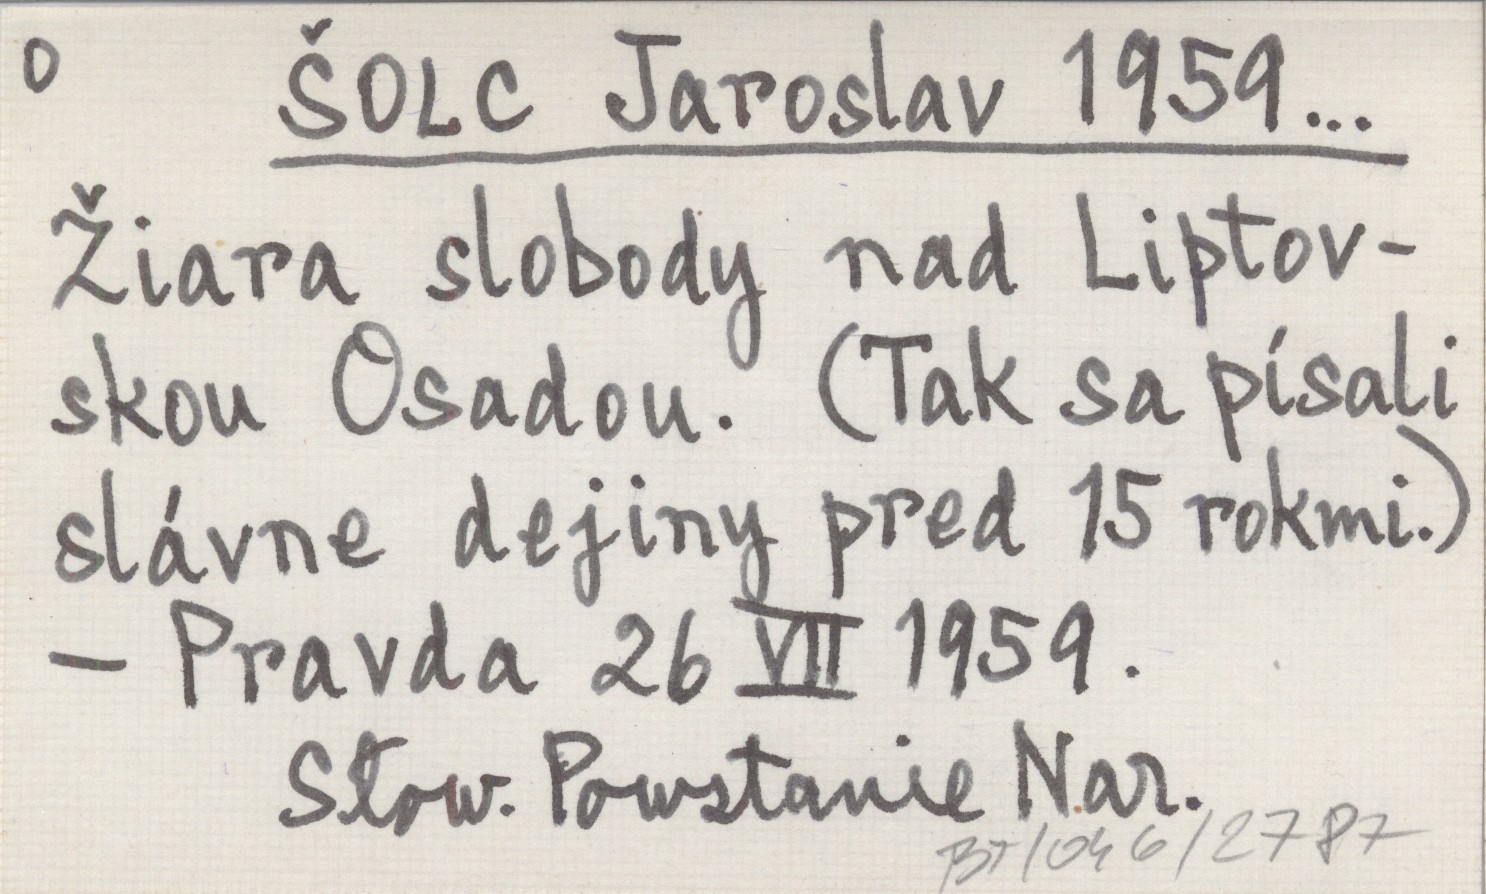 O ŠOLC Jaroslav 1959...
Žiara slobody nad Liptov-
skou Osadou. (Tak sa písali
slávne dejiny pred 15 rokmi.)
— Pravda 26 VII 1959.
Słow. Powstanie Nar.
BT/046/2787